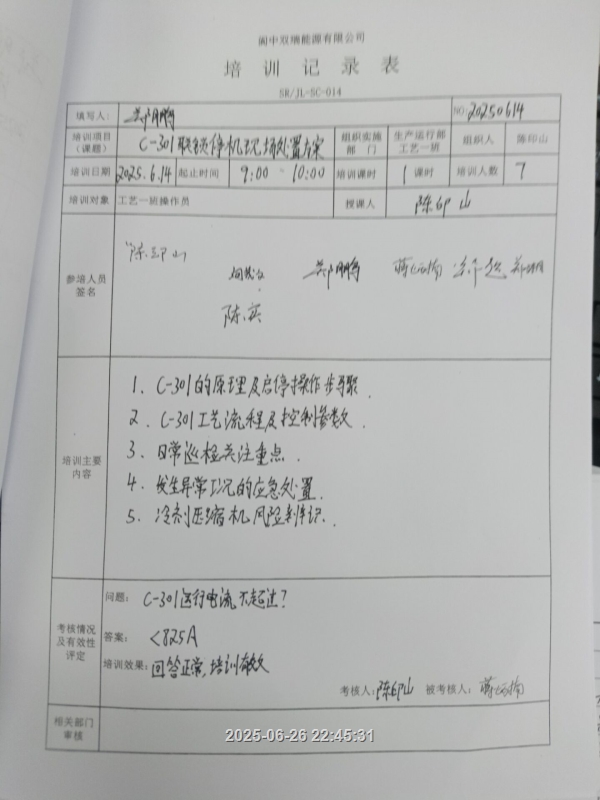 阆中双瑞能源有限公司
培训记录表
SR/JL-SC-014
填写人: 郑明鹏 NO:20250614
培训项目（课题） C-301联锁停机现场处置方案 组织实施部门 生产运行部工艺一班 组织人 陈印山
培训日期 2025.6.14 起止时间 9:00 - 10:00 培训课时 1课时 培训人数 7
培训对象 工艺一班操作员 授课人 陈印山
参培人员签名
陈印山
陈实
培训主要内容
1. C-301的原理及启停操作步骤.
2. C-301工艺流程及控制参数.
3. 日常巡检关注重点.
4. 发生异常工况的应急处置.
5. 冷剂压缩机风险辨识.
考核情况及有效性评定
问题: C-301运行电流不超过?
答案: <825A
培训效果: 回答正常,培训有效
考核人:陈印山 被考核人:
相关部门审核
2025-06-26 22:45:31